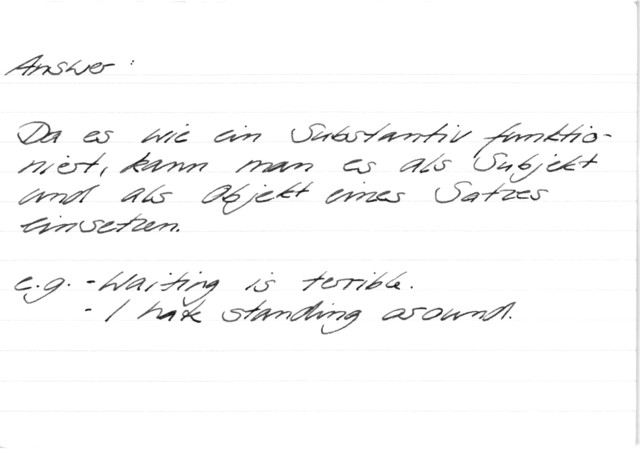 Answer:
Da es wie ein Substantiv funktio-
niert, kann man es als Subjekt
und als Objekt eines Satzes
einsetzen.
e.g. - Waiting is terrible.
- I hate standing around.